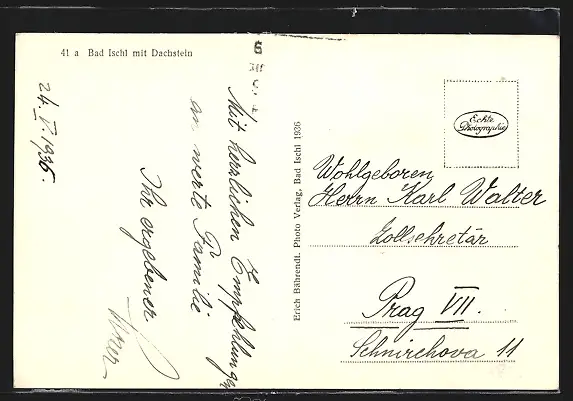 41 a Bad Ischl mit Dachstein
24. V. 1936.
Mit herzlichen Empfehlungen
an werte Familie
Ihr ergebener
Erich Bährendt, Photo Verlag, Bad Ischl 1936
Echte
Photographie
Wohlgeboren
Herrn Karl Walter
Zollsekretär
Prag VII.
Schnirchova 11